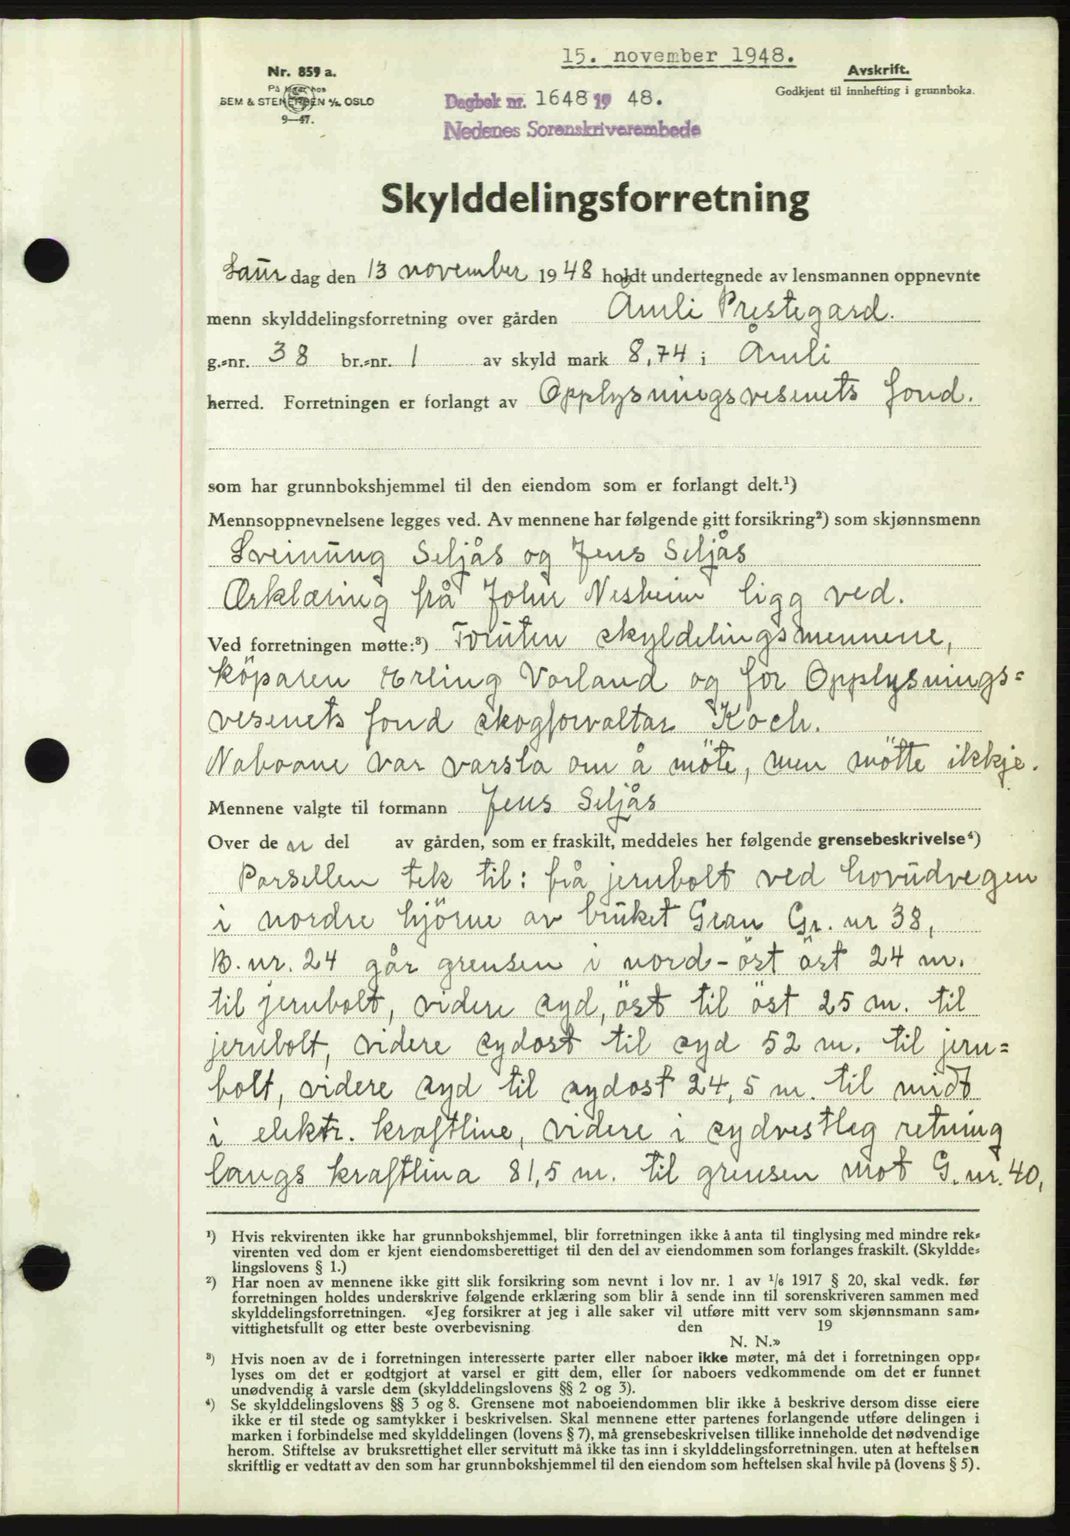 15. november 1948.
Nr. 859 a.
Avskrift.
På lager hos
Godkjent til innhefting i grunnboka.
SEM & STENERSEN A/S OSLO
Dagbok nr. 1648 19 48.
9—47.
Nedenes Sorenskriverembede
Skylddelingsforretning
Laur dag den 13 november 1948 holdt undertegnede av lensmannen oppnevnte
menn skylddelingsforretning over gården Åmli Prestegard.
g.-nr. 38 br.-nr. 1 av skyld mark 8,74 i Åmli
herred. Forretningen er forlangt av Opplysningsvesenets fond.
som har grunnbokshjemmel til den eiendom som er forlangt delt.¹)
Mennsoppnevnelsene legges ved. Av mennene har følgende gitt forsikring²) som skjønnsmenn
Sveinung Seljås og Jens Seljås
Ærklæring frå John Nesheim ligg ved.
Ved forretningen møtte:³) Foruten skyldelingsmennene,
köparen Erling Vorland og for Opplysnings=
vesenets fond skogforvaltar Koch.
Naboane var varsla om å möte, men mötte ikkje.
Mennene valgte til formann Jens Seljås
Over de n del av gården, som er fraskilt, meddeles her følgende grensebeskrivelse⁴)
Parsellen tek til: frå jernbolt ved hovudvegen
i nordre hjörne av bruket Gran Gr. nr 38,
B. nr. 24 går grensen i nord-öst öst 24 m.
til jernbolt, videre syd, öst til öst 25 m. til
jernbolt, videre sydost til syd 52 m. til jern=
bolt, videre syd til sydost 24,5 m. til midt
i elektr. kraftline, videre i sydvestleg retning
langs kraftlina 81,5 m. til grensen mot G. nr. 40,
¹) Hvis rekvirenten ikke har grunnbokshjemmel, blir forretningen ikke å anta til tinglysing med mindre rek-
virenten ved dom er kjent eiendomsberettiget til den del av eiendommen som forlanges fraskilt. (Skyldde-
lingslovens § 1.)
²) Har noen av mennene ikke gitt slik forsikring som nevnt i lov nr. 1 av ¹/6 1917 § 20, skal vedk. før
forretningen holdes underskrive følgende erklæring som blir å sende inn til sorenskriveren sammen med
skylddelingsforretningen. «Jeg forsikrer at jeg i alle saker vil utføre mitt verv som skjønnsmann sam-
vittighetsfullt og etter beste overbevisning den 19
N. N.»
³) Hvis noen av de i forretningen interesserte parter eller naboer ikke møter, må det i forretningen opp-
lyses om det er godtgjort at varsel er gitt dem, eller for naboers vedkommende om det er funnet
unødvendig å varsle dem (skylddelingslovens §§ 2 og 3).
⁴) Se skylddelingslovens §§ 3 og 8. Grensene mot naboeiendommen blir ikke å beskrive dersom disse eiere
ikke er til stede og samtykker i beskrivelsen. Skal mennene etter partenes forlangende utføre delingen i
marken i forbindelse med skylddelingen (lovens § 7), må grensebeskrivelsen tillike inneholde det nødvendige
herom. Stiftelse av bruksrettighet eller servitutt må ikke tas inn i skylddelingsforretningen, uten at heftelsen
skriftlig er vedtatt av den som har grunnbokshjemmel til den eiendom som heftelsen skal hvile på (lovens § 5).